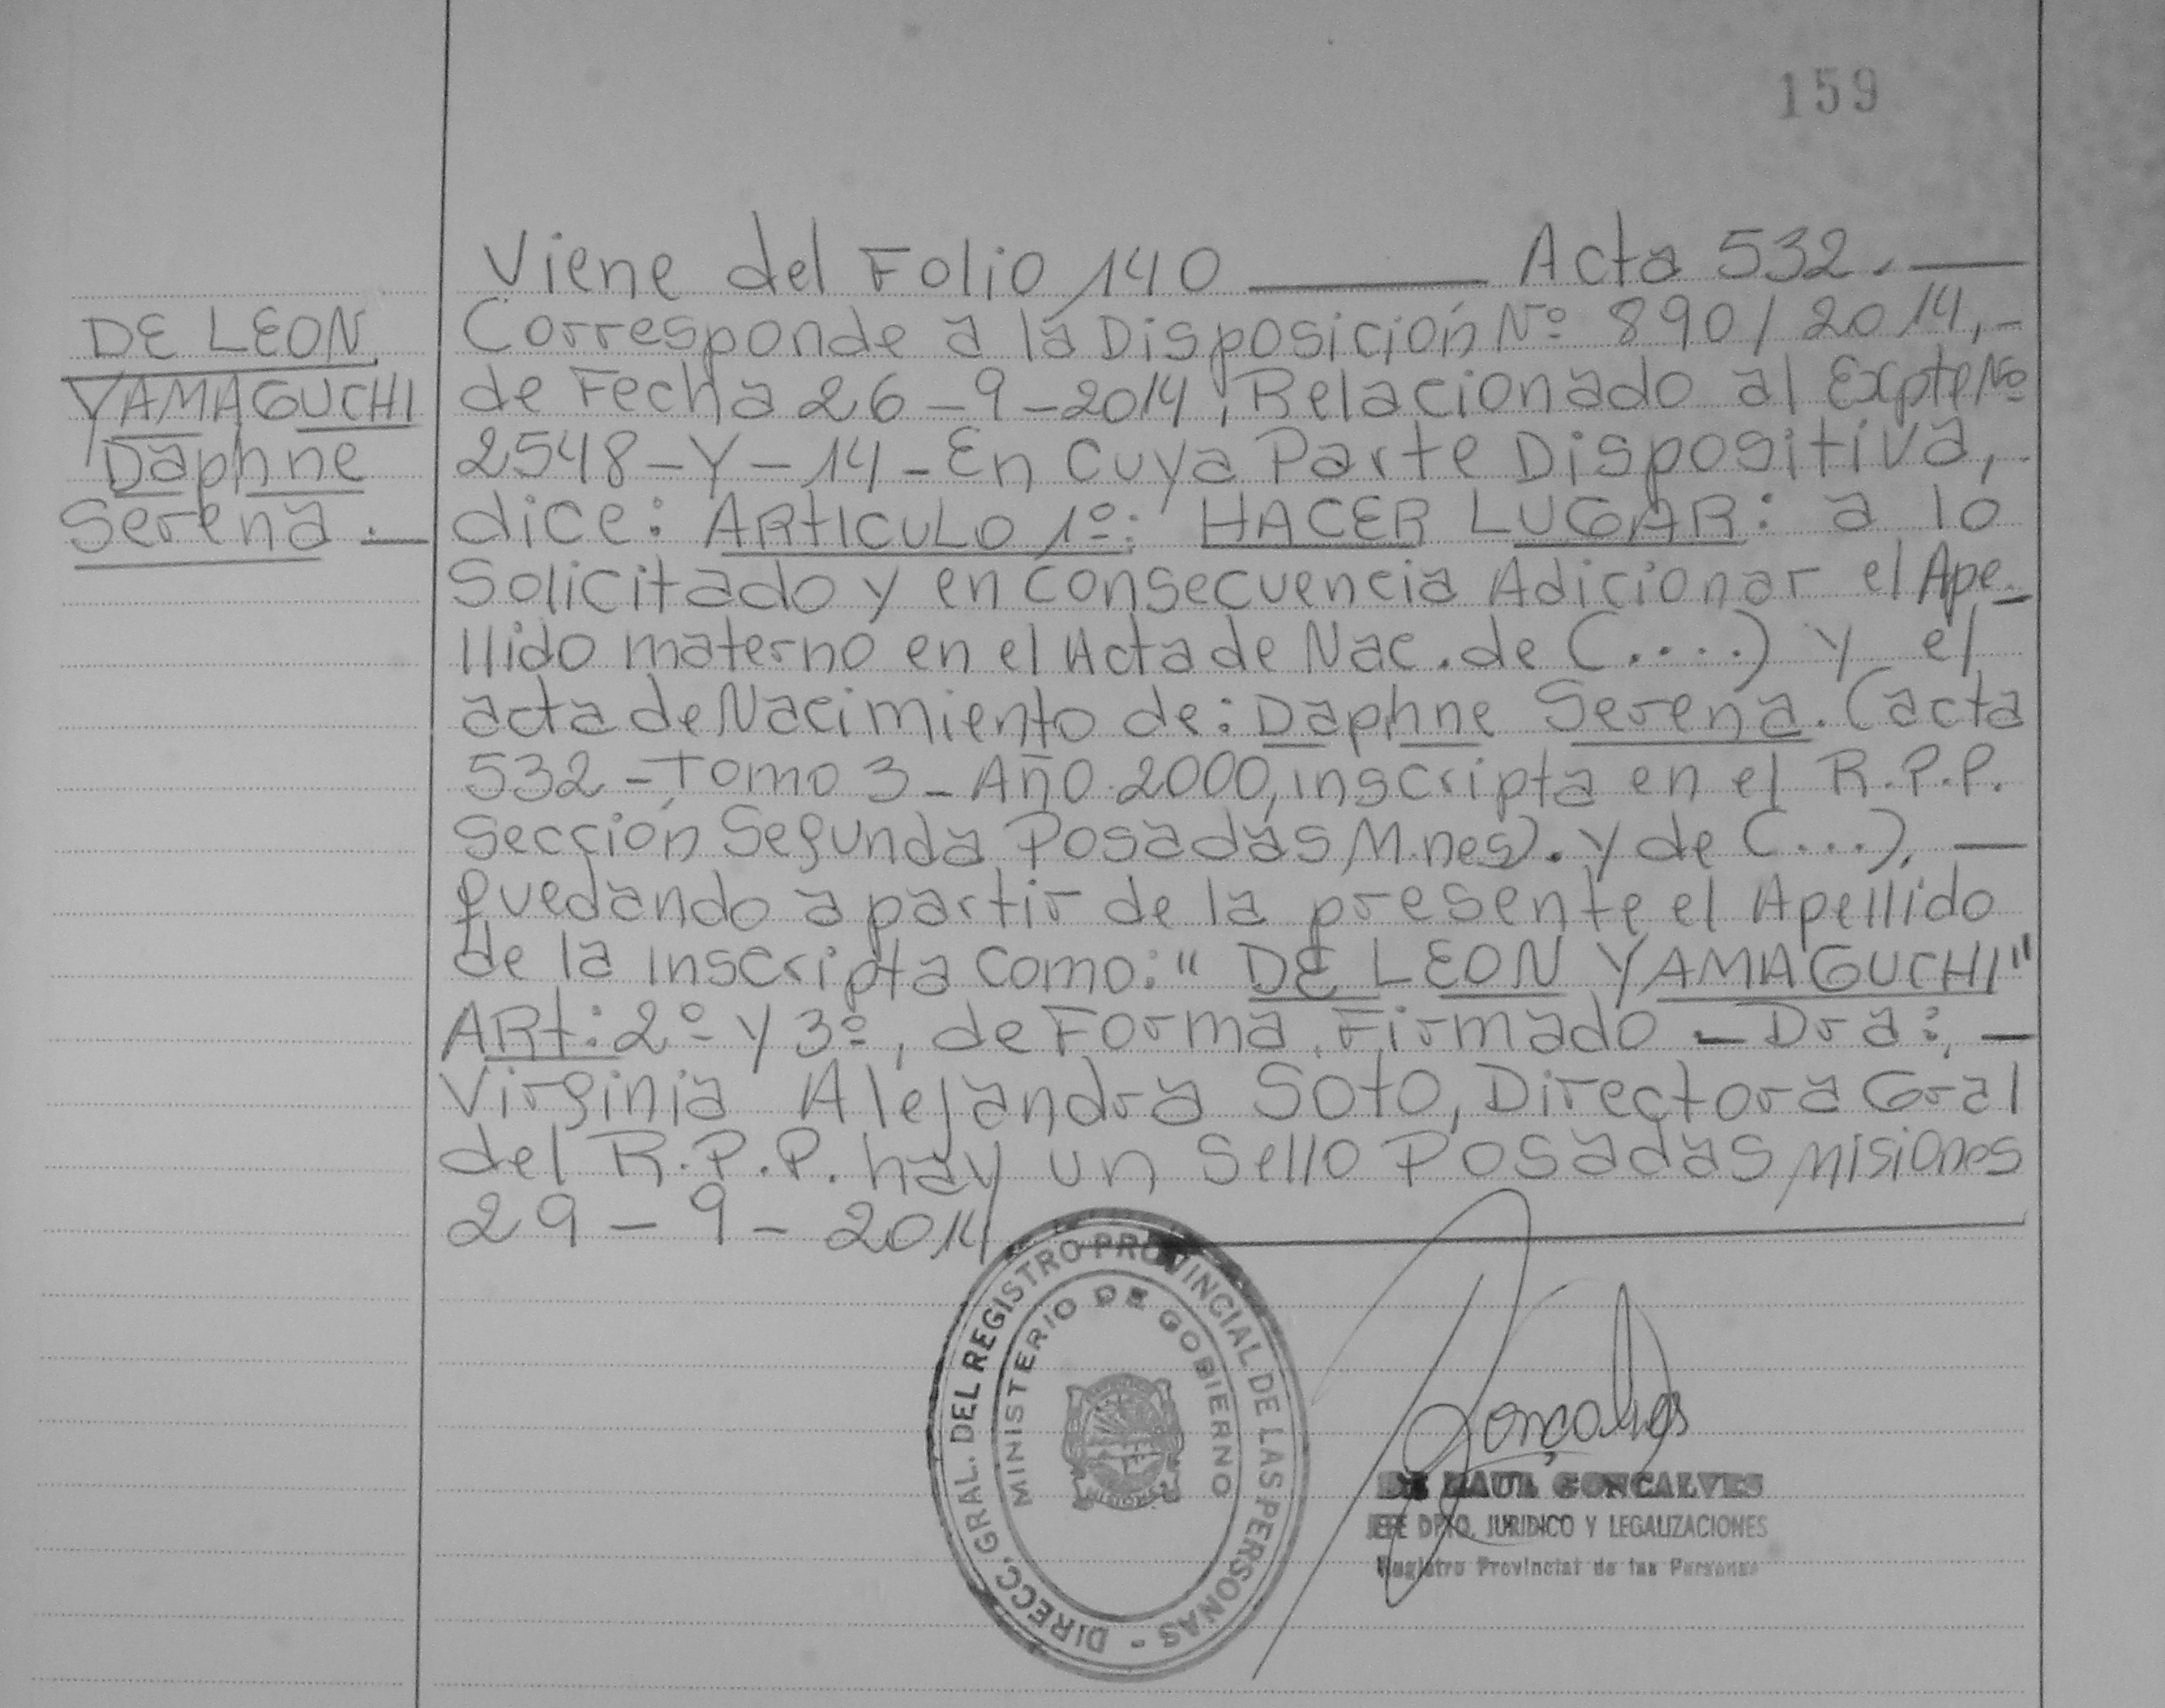 159
Viene del Folio 140 ——— Acta 532. —
DE LEON
YAMAGUCHI
Daphne
Serena. —
Corresponde a la Disposición Nº 890/2014,-
de Fecha 26-9-2014, Relacionado al Expte Nº
2548-Y-14-En Cuya Parte Dispositiva,
dice: ARTICULO 1º: HACER LUGAR: a lo
Solicitado y en consecuencia Adicionar el Ape-
llido materno en el Acta de Nac. de (....) y el
acta de Nacimiento de: Daphne Serena. (acta
532-Tomo 3-Año 2000, inscripta en el R.P.P.
Sección Segunda Posadas, M.nes). y de (...). —
quedando a partir de la presente el Apellido
de la inscripta como: "DE LEON YAMAGUCHI"
ARt: 2º y 3º, de Forma. Firmado - Dra: -
Virginia Alejandra Soto, Directora Gral
del R.P.P. hay un Sello Posadas Misiones
29-9-2014
DIRECC. GRAL. DEL REGISTRO PROVINCIAL DE LAS PERSONAS -
MINISTERIO DE GOBIERNO
MISIONES
Gonçalves
RAUL GONCALVES
JEFE DPTO. JURIDICO Y LEGALIZACIONES
Registro Provincial de las Personas